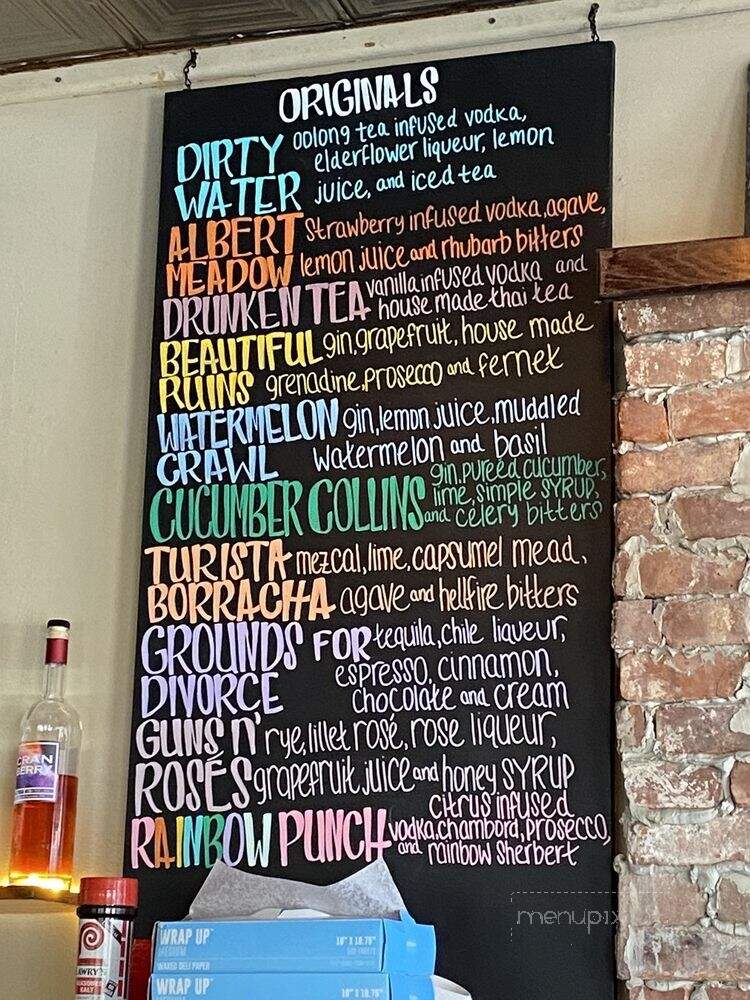 ORIGINALS
DIRTY WATER
oolong tea infused vodka,
elderflower liqueur, lemon
juice, and iced tea
ALBERT MEADOW
strawberry infused vodka, agave,
lemon juice and rhubarb bitters
DRUNKEN TEA
vanilla infused vodka and
house made thai tea
BEAUTIFUL RUINS
gin, grapefruit, house made
grenadine, prosecco and fernet
WATERMELON CRAWL
gin, lemon juice, muddled
watermelon and basil
CUCUMBER COLLINS
gin, pureed cucumber,
lime, simple SYRUP,
and celery bitters
TURISTA BORRACHA
mezcal, lime, capsumel mead,
agave and hellfire bitters
GROUNDS FOR DIVORCE
tequila, chile liqueur,
espresso, cinnamon,
chocolate and cream
GUNS N' ROSÉS
rye, lillet rosé, rose liqueur,
grapefruit juice and honey SYRUP
RAINBOW PUNCH
citrus infused
vodka, chambord, prosecco,
and rainbow sherbert
CRAN
BERRY
WRAP UP™
MEDIUM
WAXED DELI PAPER
10" X 10.75"
WRAP UP™
10" X 10.75"
LAWRY'S
SEASONED
SALT
menupix